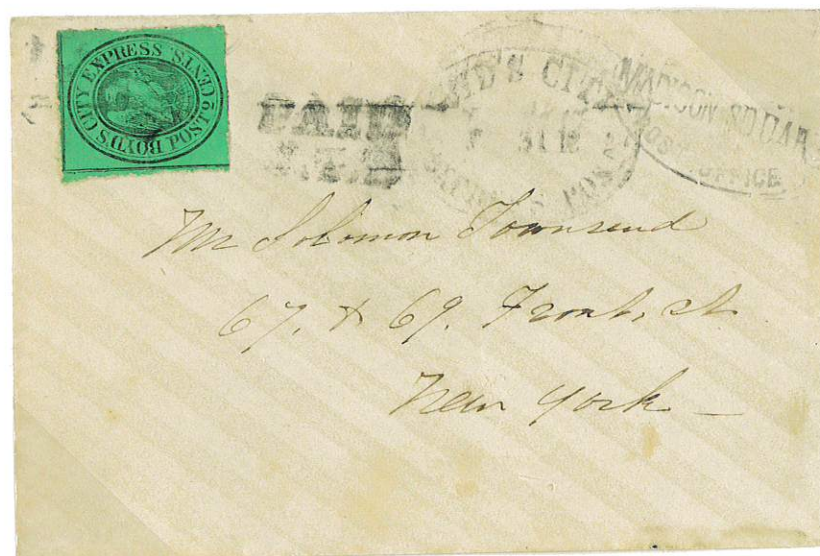 BOYD'S CITY EXPRESS POST. 2 CENTS.
PAID
J.T.B.
BOYD'S CITY
EXPRESS POS
MADISON SQUAR
POST
OFFICE
Mr Solomon Townsend
67. & 69. Front. st
New York —